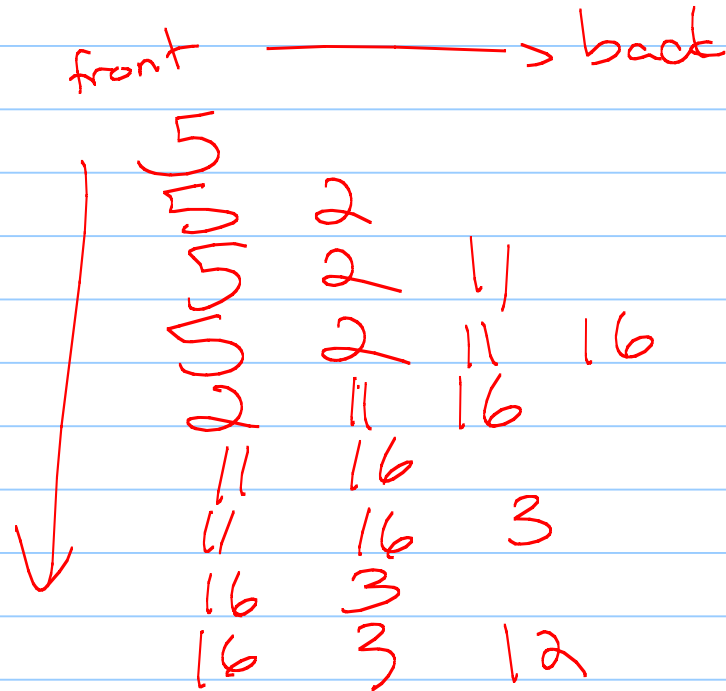 front back
5
5 2
5 2 11
5 2 11 16
2 11 16
11 16
11 16 3
16 3
16 3 12